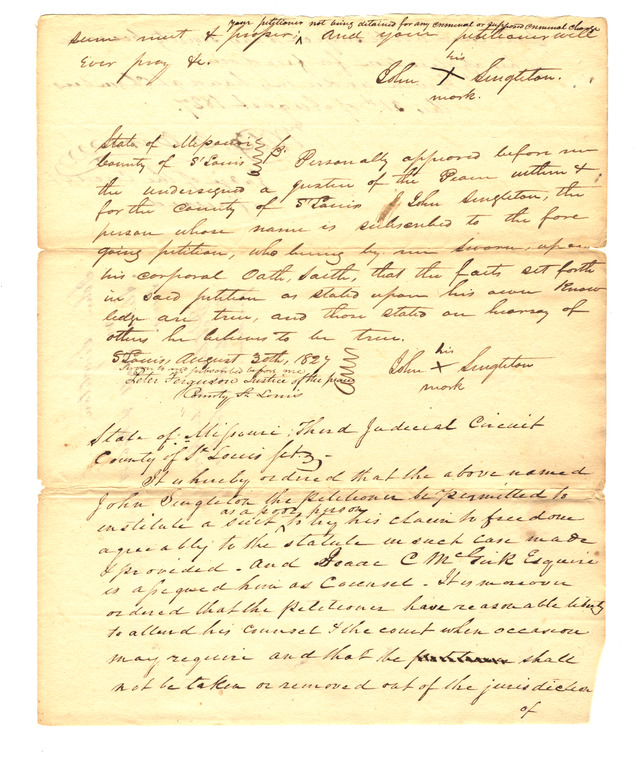 your petitioner not being detained for any criminal or supposed criminal charge
seem meet & proper; ^ And your petitioner will
Ever pray &c.
his
John X Singleton.
mark.
State of Missouri
County of St Louis } ss. Personally appeared before me
the undersigned a justice of the Peace within &
for the County of St Louis John Singleton, the
person whose name is subscribed to the fore
going petition, who being by me sworn, upon
his corporal Oath, saith, that the facts set forth
in said petition as stated upon his own Know
ledge are true, and those stated on hearsay of
others he believes to be true.
St Louis, August 30th, 1827
his
John X Singleton
mark
Sworn to and subscribed before me
Peter Ferguson Justice of the peace
County St Louis
State of Missouri Third Judicial Circuit
County of St Louis Sct
It is hereby ordered that the above named
John Singleton the petitioner be permitted to
as a poor person
institute a suit ^ to try his claim to freedom
agreeably to the statute in such case made
& provided - And Isaac C McGirk Esquire
is assigned him as Counsel - It is moreover
ordered that the petitioner have reasonable liberty
to attend his Counsel & the court when occasion
may require and that he shall
not be taken or removed out of the jurisdiction
of